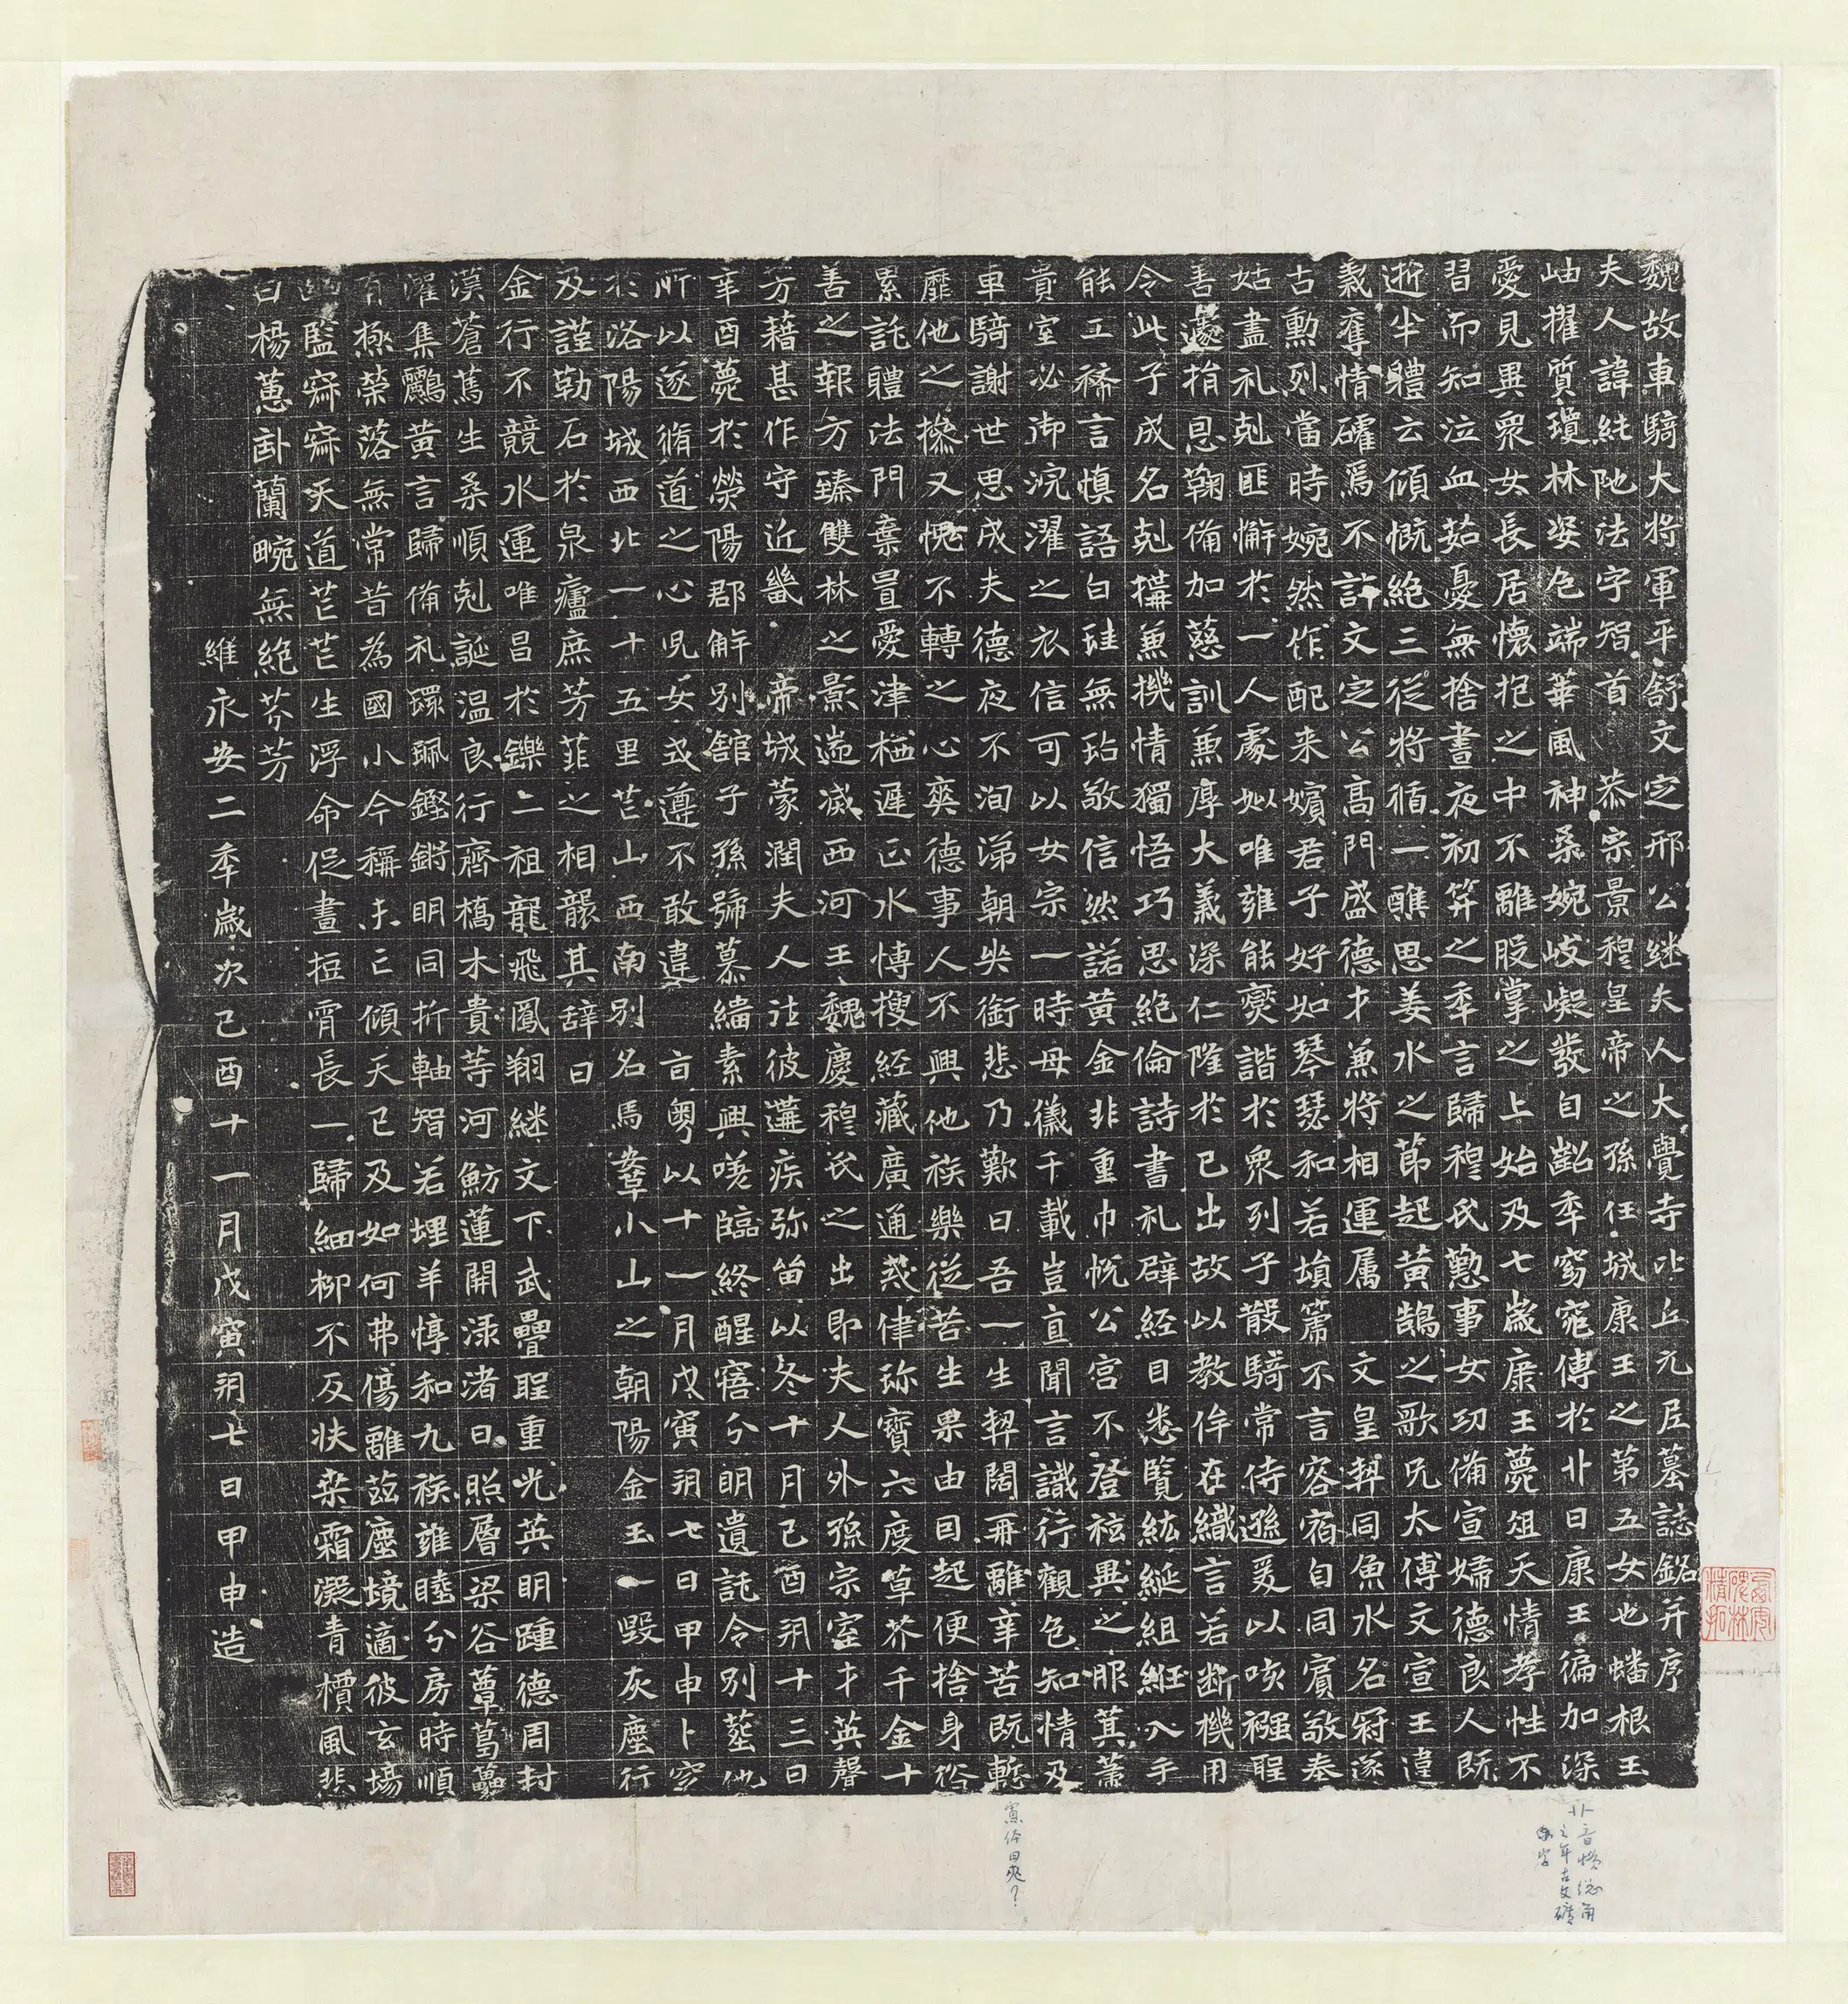 魏故車騎大將軍平舒文定邢公継夫人大覺寺比丘元尼墓誌銘并序
夫人諱純陁法字智首恭宗景穆皇帝之孫任城康王之第五女也蟠根玉
岫擢質瓊林姿色端華風神柔婉岐嶷發自齠年窈窕傳於卝日康王徧加深
愛見異衆女長居懷抱之中不離股掌之上始及七歲康王薨俎天情孝性不
習而知泣血茹憂無捨晝夜初笄之年言歸穆氏懃事女功備宣婦德良人既
逝半體云傾慨絶三從將循一醮思姜水之節起黃鵠之歌兄太傅文宣王違
義奪情確焉不許文定公高門盛德才兼將相運属文皇契同魚水名冠遂
古勳烈當時婉然作配来嬪君子好如琴瑟和若塤篪不言容宿自同賓敬奉
姑盡礼剋匪懈於一人處姒唯雍能燮諧於衆列子散騎常侍遜爰以咳襁聖
善遽捐恩鞠備加慈訓兼厚大義深仁隆於已出故以教侔在織言若斷機用
令此子成名剋搆兼機情獨悟巧思絶倫詩書礼辟經目悉覽紘綖組紝入手
能工稀言慎語白珪無玷敬信然諾黄金非重巾帨公宮不登袨異之服箕蒂
貴室必御浣濯之衣信可以女宗一時母儀千載豈直聞言識行觀色知情及
車騎謝世思成夫德夜不洵涕朝央銜悲乃歎曰吾一生契闊再離辛苦既慙
靡他之操又愧不轉之心爽德事人不興他族樂從苦生果由因起便捨身俗
累託體法門棄置愛津栖遲正水博搜經藏廣通戒律珎寶六度草芥千金十
善之報方臻雙林之影遄滅西河王魏慶穆氏之出即夫人外孫宗室才英聲
芳藉甚作守近畿帝城蒙潤夫人往彼遘疾弥留以冬十月己酉朔十三日
辛酉薨於滎陽郡解別館子孫號慕緇素興嗟臨終醒寤分明遺託令別塟他
所以遂脩道之心兒女式遵不敢違旨粤以十一月戊寅朔七日甲申卜窆
於洛陽城西北一十五里芒山西南別名馬鞌小山之朝陽金玉一毁灰塵行
及謹勒石於泉廬庶芳菲之相襲其辞曰
金行不競水運唯昌於鑠二祖龍飛鳳翔継文下武疊聖重光英明踵德周封
漢蒼篤生柔順剋誕温良行齊橋木貴等河魴蓮開渌渚日照層梁谷蕈葛虆
灌集鸝黃言歸備礼環珮鏗鏘明同折軸智若埋羊惇和九族雍睦分房時順
有極榮落無常昔為國小今稱未亡傾天已及如何弗傷離茲塵境適彼玄場
幽監寂寂天道芒芒生浮命促晝短宵長一歸細柳不反扶桒霜凝青檟風悲
白楊蕙畝蘭畹無絶芬芳
維永安二年歲次己酉十一月戊寅朔七日甲申造